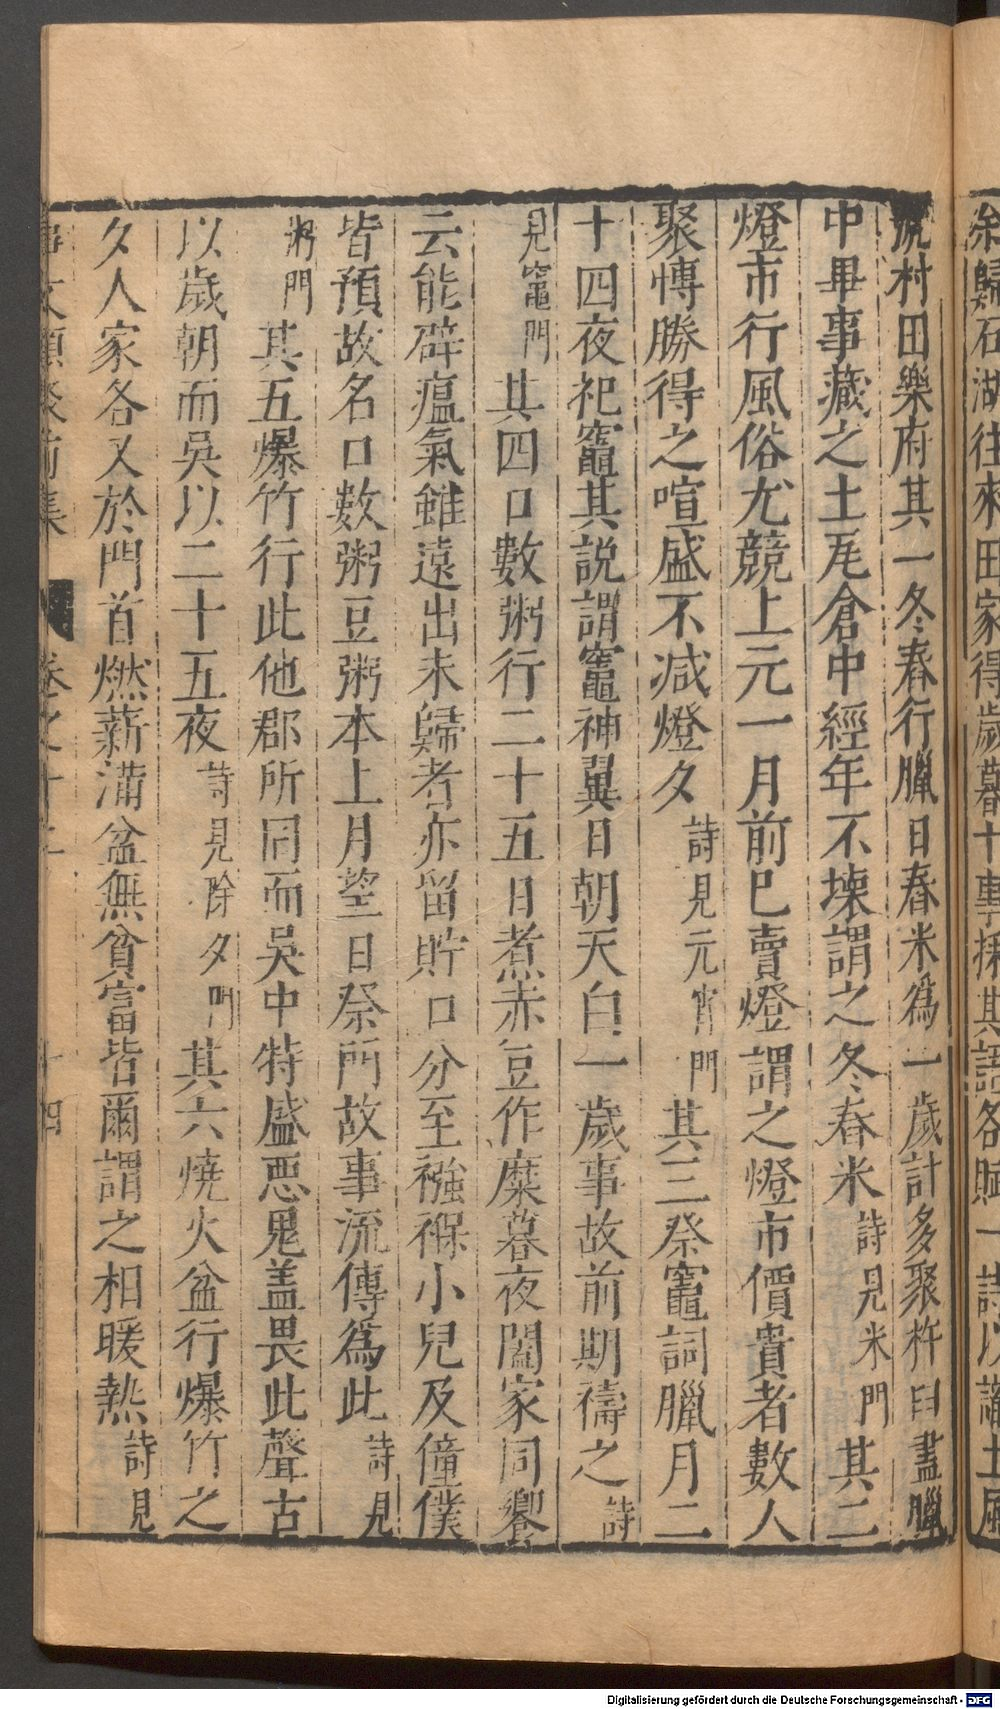 余歸石湖往來田家得歲暮十事採其語各賦一詩以識土風
號村田樂府其一冬舂行臘日舂米爲一歲計多聚杵臼盡臘
中畢事藏之土瓦倉中經年不壞謂之冬舂米詩見米門其二
燈市行風俗尤競上元一月前已賣燈謂之燈市價貴者數人
聚愽勝得之喧盛不减燈夕詩見元宵門其三祭竈詞臘月二
十四夜祀竈其説謂竈神翼日朝天白一歲事故前期禱之詩
見竈門其四口數粥行二十五日煮赤豆作糜暮夜闔家同饗
云能辟瘟氣雖遠出未歸者亦留貯口分至襁褓小兒及僮僕
皆預故名口數粥豆粥本上月望日祭門故事流傳爲此詩見
粥門其五爆竹行此他郡所同而吳中特盛惡鬼盖畏此聲古
以歲朝而吳以二十五夜詩見除夕門其六燒火盆行爆竹之
夕人家各又於門首燃薪滿盆無貧富皆爾謂之相暖熱詩見
事文類聚前集 卷之十二 十四
Digitalisierung gefördert durch die Deutsche Forschungsgemeinschaft - DFG